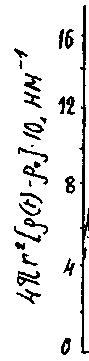 4πr²[ρ(r)-ρ₀]·10, нм⁻¹
16
12
8
4
0